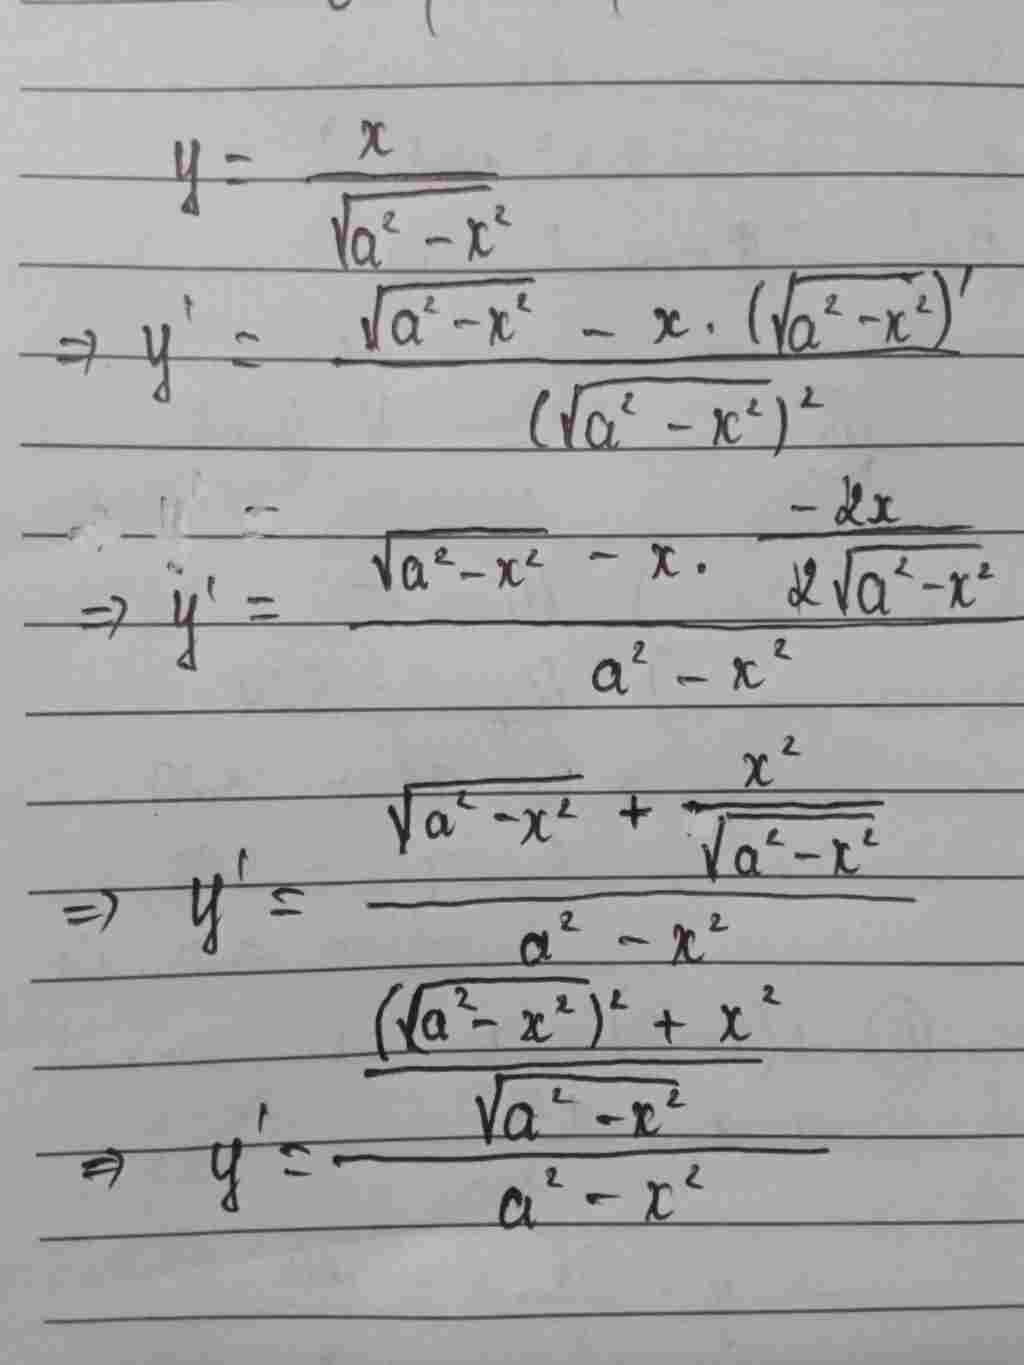 y = x / √(a² - x²)
⇒ y' = (√(a² - x²) - x . (√(a² - x²))') / (√(a² - x²))²
⇒ y' = (√(a² - x²) - x . (-2x / 2√(a² - x²))) / (a² - x²)
⇒ y' = (√(a² - x²) + x² / √(a² - x²)) / (a² - x²)
⇒ y' = (((√(a² - x²))² + x²) / √(a² - x²)) / (a² - x²)